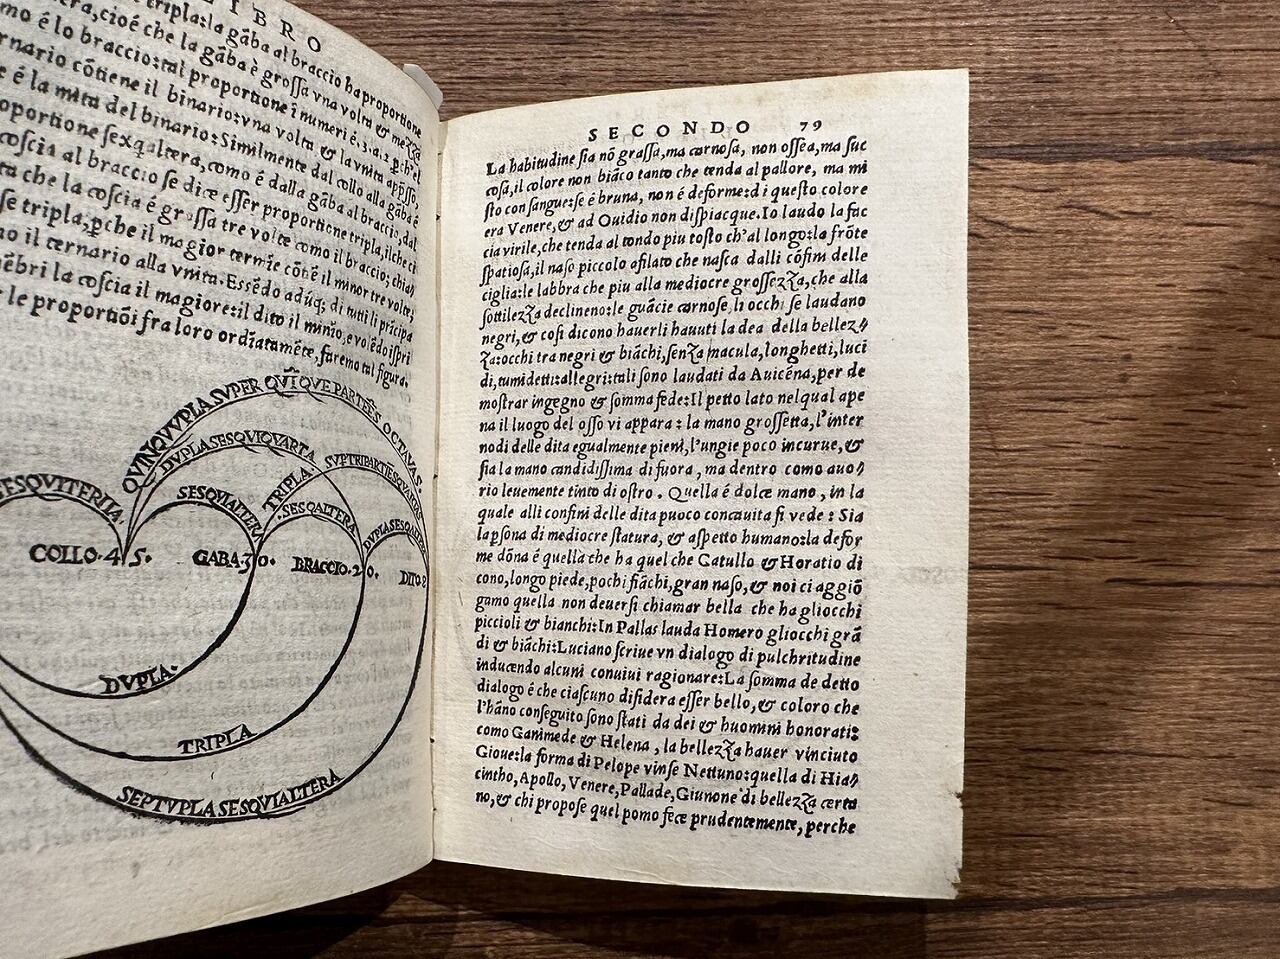 LIBRO
tripla: la gãba al braccio ha proportione
cioé che la gãba è groſſa vna volta & mezza
mo é lo braccio: tal proportione ĩ numeri é .3. a .2.
rnario cõtiene il binario: vna volta & la vnita appſſo,
é la mita del binario: Similmente dal collo alla gãba é
oportione ſexqaltera, como é dalla gãba al braccio, dal
coſcia al braccio ſe dice eſſer proportione tripla, ilche ci
che la coſcia é groſſa tre volte como il braccio; chia/
ſe tripla, ꝑche il magior termĩe cõtẽ il minor tre volte,
no il ternario alla vnita. Eſſẽdo adũq; di tutti li prĩcipa
ẽbri la coſcia il magiore: il dito il minío, e volẽdo iſpri
le proportiõi fra loro ordĩatamẽte, faremo tal figura.
QVINQVVPLA SVPER QVĨQVE PARTẼS OCTAVAS.
DVPLASESQVIQVARTA
SVPTRIPARTIẼSQVARTAS
SESQVITERTIA.
SESQVIALTERA
TRIPLA.
.SESQALTERA
DVPLASESQALTERA
COLLO. 45.
GABA. 30.
BRACCIO. 20.
DITO. 8
DVPLA.
TRIPLA
SEPTVPLA SESQVIALTERA
SECONDO 79
La habitudine ſia nõ graſſa, ma carnoſa, non oſſea, ma ſuc
coſa, il colore non biãco tanto che tenda al pallore, ma mi
ſto con ſangue: ſe é bruna, non é deforme: di queſto colore
era Venere, & ad Ouidio non diſpiacque. Io laudo la fac
cia virile, che tenda al tondo piu toſto ch'al longo: la frõte
ſpatioſa, il naſo piccolo afilato che naſca dalli cõfim delle
ciglia: le labbra che piu alla mediocre groſſezza, che alla
ſottilezza declineno: le guãcie carnoſe, li occhi ſe laudano
negri, & coſi dicono hauerli hauuti la dea della bellez//
za: occhi tra negri & biãchi, ſenza macula, longhetti, luci
di, tumidetti: allegri: tali ſono laudati da Auicẽna, per de
moſtrar ingegno & ſomma fede: Il petto lato nelqual ape
na il luogo del oſſo vi appara: la mano groſſetta, l'inter
nodi delle dita egualmente pieni, l'ungie poco incurue, &
ſia la mano candidiſſima di fuora, ma dentro como auo//
rio leuemente tinto di oſtro. Quella é dolce mano, in la
quale alli confini delle dita puoco concauita ſi vede: Sia
la ꝑſona di mediocre ſtatura, & aſpetto humano: la defor
me dõna é quella che ha quel che Catullo & Horatio di
cono, longo piede, pochi fiãchi, gran naſo, & noi ci aggiõ
gamo quella non deuerſi chiamar bella che ha gliocchi
piccioli & bianchi: In Pallas lauda Homero gliocchi grã
di & biãchi: Luciano ſcriue vn dialogo di pulchritudine
inducendo alcuni conuiui ragionare: La ſomma de detto
dialogo é che ciaſcuno diſidera eſſer bello, & coloro che
l'hãno conſeguito ſono ſtati da dei & huomini honorati:
como Ganimede & Helena, la bellezza hauer vinciuto
Gioue: la forma di Pelope vinſe Nettuno: quella di Hia//
cintho, Apollo, Venere, Pallade, Giunone di bellezza certa
no, & chi propoſe quel pomo fece prudentemente, perche